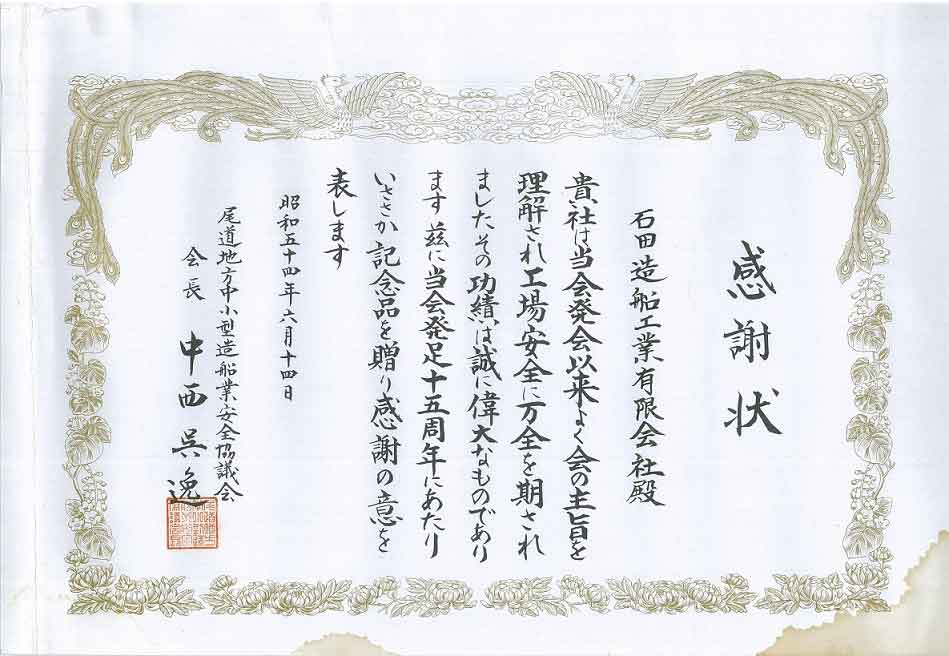 感謝状
石田造船工業有限会社殿
貴社は当会発会以来よく会の主旨を
理解され工場安全に万全を期され
ましたその功績は誠に偉大なものであり
ます茲に当会発足十五周年にあたり
いささか記念品を贈り感謝の意を
表します
昭和五十四年六月十四日
尾道地方中小型造船業安全協議会
会長 中西呉逸